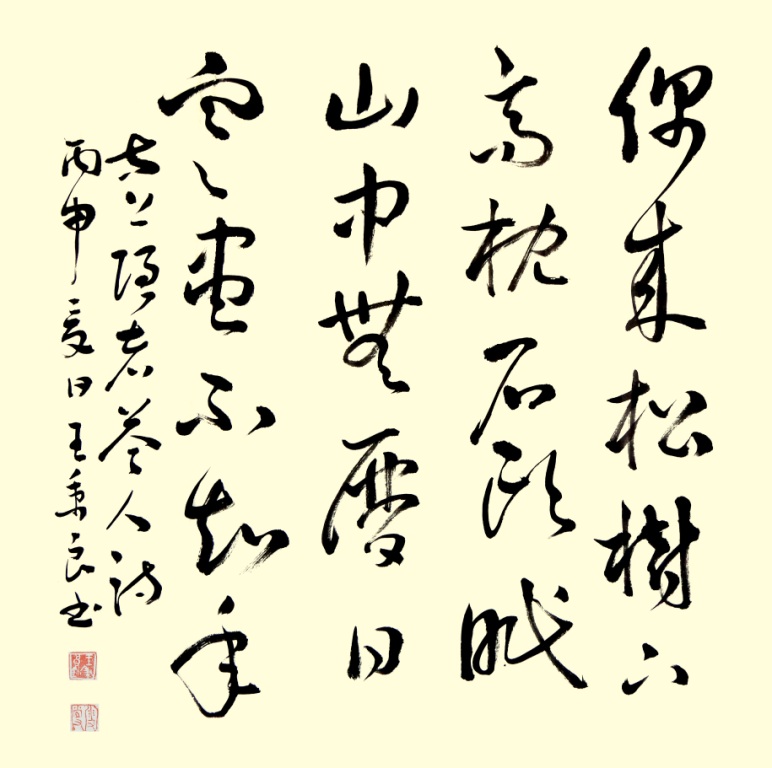 偶來松樹下
高枕石頭眠
山中無曆日
寒盡不知年
太上隱者答人詩
丙申夏日王秉良书